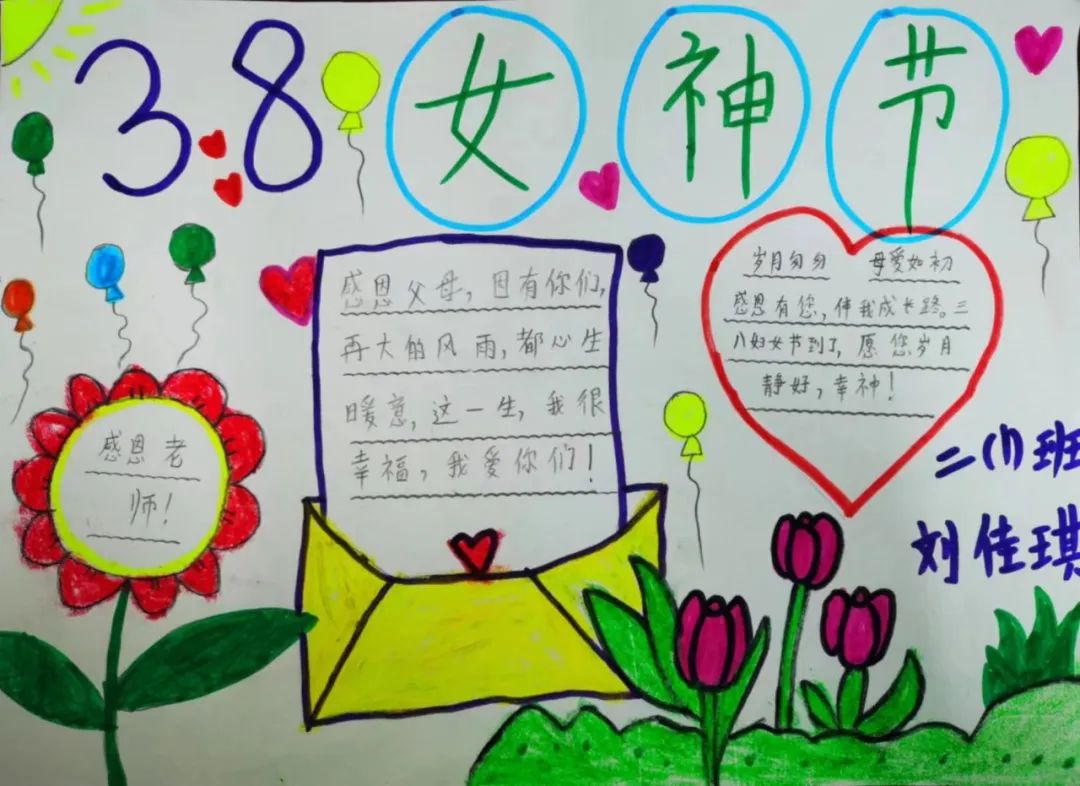 3.8 女神节
感恩父母,因有你们,
再大的风雨,都心生
暖意,这一生,我很
幸福,我爱你们!
岁月匆匆 母爱如初
感恩有您,伴我成长路。三
八妇女节到了,愿您岁月
静好,幸神!
感恩老
师!
二(1)班
刘佳琪